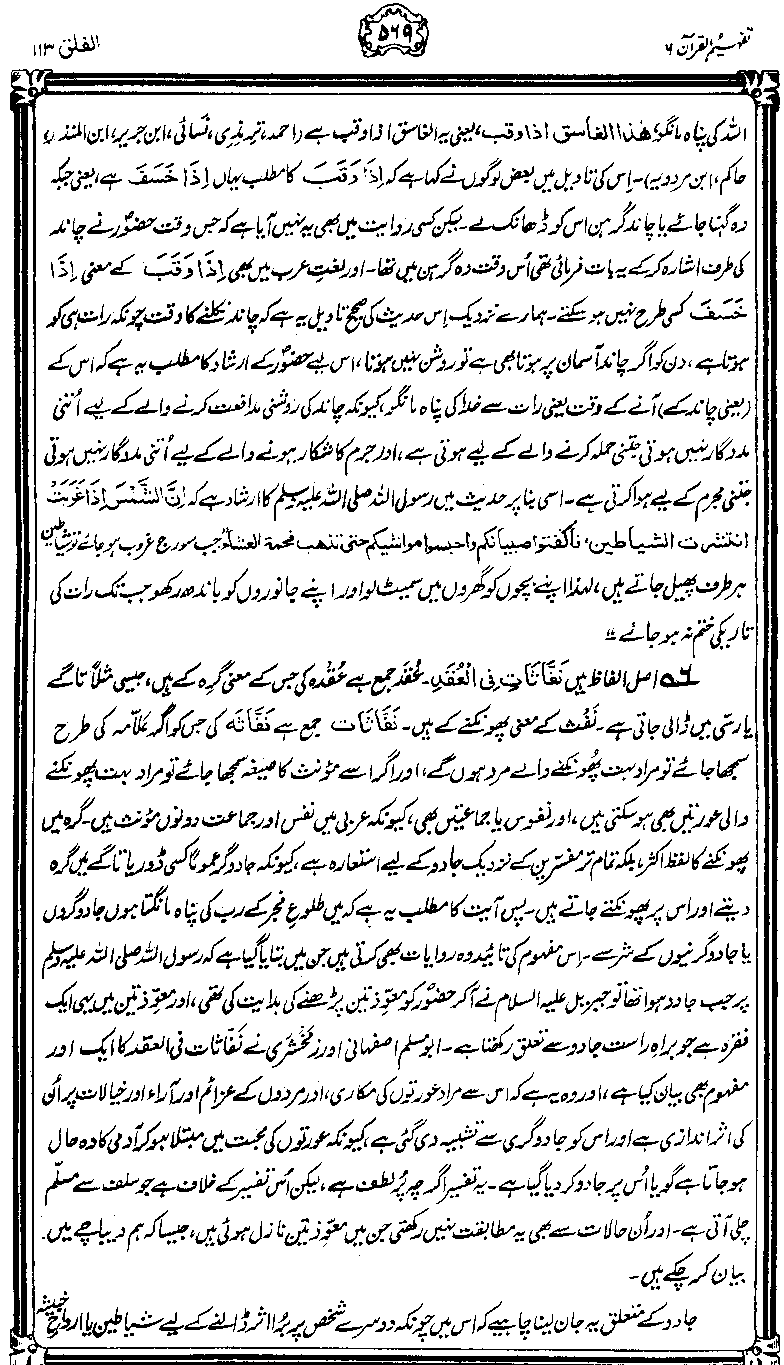 تفہیم القرآن ۶
۵۶۹
الفلق ۱۱۳
اللہ کی پناہ مانگو، ھٰذا الغاسق اذا وقب، یعنی یہ الغاسق اذا وقب ہے (احمد، ترمذی، نسائی، ابن جریر، ابن المنذر،
حاکم، ابن مردویہ)۔ اِس کی تاویل میں بعض لوگوں نے کہا ہے کہ اِذَا وَقَبَ کا مطلب یہاں اِذَا خَسَفَ ہے، یعنی جبکہ
وہ گہنا جائے یا چاند گرہن اس کو ڈھانک لے۔ لیکن کسی روایت میں بھی یہ نہیں آیا ہے کہ جس وقت حضورؐ نے چاند
کی طرف اشارہ کر کے یہ بات فرمائی تھی اُس وقت وہ گرہن میں تھا۔ اور لغتِ عرب میں بھی اِذَا وَقَبَ کے معنی اِذَا
خَسَفَ کسی طرح نہیں ہو سکتے۔ ہمارے نزدیک اِس حدیث کی صحیح تاویل یہ ہے کہ چاند نکلنے کا وقت چونکہ رات ہی کو
ہوتا ہے، دن کو اگر چاند آسمان پر ہوتا بھی ہے تو روشن نہیں ہوتا، اس لیے حضورؐ کے ارشاد کا مطلب یہ ہے کہ اس کے
(یعنی چاند کے) آنے کے وقت یعنی رات سے خدا کی پناہ مانگو، کیونکہ چاند کی روشنی مدافعت کرنے والے کے لیے اُتنی
مددگار نہیں ہوتی جتنی حملہ کرنے والے کے لیے ہوتی ہے، اور جرم کا شکار ہونے والے کے لیے اُتنی مددگار نہیں ہوتی
جتنی مجرم کے لیے ہوا کرتی ہے۔ اسی بنا پر حدیث میں رسول اللہ صلی اللہ علیہ وسلم کا ارشاد ہے کہ اِنَّ الشَّمْسَ اِذَا غَرَبَتْ
انتشرت الشیاطین، فاکفتوا صبیانکم واحبسوا مواشیکم حتی تذھب فحمۃ العشاء، جب سورج غروب ہو جائے تو شیاطین
ہر طرف پھیل جاتے ہیں، لہٰذا اپنے بچوں کو گھروں میں سمیٹ لو اور اپنے جانوروں کو باندھ رکھو جب تک رات کی
تاریکی ختم نہ ہو جائے"
۵۶ اصل الفاظ ہیں نَفّٰثٰتِ فِی الْعُقَدِ۔ عُقَد جمع ہے عُقْدہ کی جس کے معنی گرہ کے ہیں، جیسی مثلاً تاگے
یا رسّی میں ڈالی جاتی ہے۔ نَفْث کے معنی پھونکنے کے ہیں۔ نَفَّاثَات جمع ہے نَفَّاثَہ کی جس کو اگر علّامہ کی طرح
سمجھا جائے تو مراد بہت پھُونکنے والے مرد ہوں گے، اور اگر اسے مؤنث کا صیغہ سمجھا جائے تو مراد بہت پھونکنے
والی عورتیں بھی ہو سکتی ہیں، اور نفوس یا جماعتیں بھی، کیونکہ عربی میں نفس اور جماعت دونوں مؤنث ہیں۔ گرہ میں
پھونکنے کا لفظ اکثر، بلکہ تمام تر مفسرین کے نزدیک جادو کے لیے استعارہ ہے، کیونکہ جادوگر عموماً کسی ڈور یا تاگے میں گرہ
دیتے اور اس پر پھونکتے جاتے ہیں۔ پس آیت کا مطلب یہ ہے کہ میں طلوعِ فجر کے رب کی پناہ مانگتا ہوں جادوگروں
یا جادوگرنیوں کے شر سے۔ اس مفہوم کی تائید وہ روایات بھی کرتی ہیں جن میں بتایا گیا ہے کہ رسول اللہ صلی اللہ علیہ وسلم
پر جب جادو ہوا تھا تو جبریل علیہ السلام نے آکر حضورؐ کو معوّذتین پڑھنے کی ہدایت کی تھی، اور معوّذتین میں یہی ایک
فقرہ ہے جو براہِ راست جادو سے تعلق رکھتا ہے۔ ابو مسلم اصفہانی اور زمخشری نے نَفّاثات فی العقد کا ایک اور
مفہوم بھی بیان کیا ہے، اور وہ یہ ہے کہ اس سے مراد عورتوں کی مکاری، اور مردوں کے عزائم اور آراء اور خیالات پر اُن
کی اثر اندازی ہے اور اس کو جادوگری سے تشبیہ دی گئی ہے، کیونکہ عورتوں کی محبت میں مبتلا ہو کر آدمی کا وہ حال
ہو جاتا ہے گویا اُس پر جادو کر دیا گیا ہے۔ یہ تفسیر اگرچہ پُر لطف ہے، لیکن اُس تفسیر کے خلاف ہے جو سلف سے مسلّم
چلی آتی ہے۔ اور اُن حالات سے بھی یہ مطابقت نہیں رکھتی جن میں معوّذتین نازل ہوئی ہیں، جیسا کہ ہم دیباچے میں
بیان کر چکے ہیں۔
جادو کے متعلق یہ جان لینا چاہیے کہ اس میں چونکہ دوسرے شخص پر بُرا اثر ڈالنے کے لیے شیاطین یا ارواحِ خبیثہ